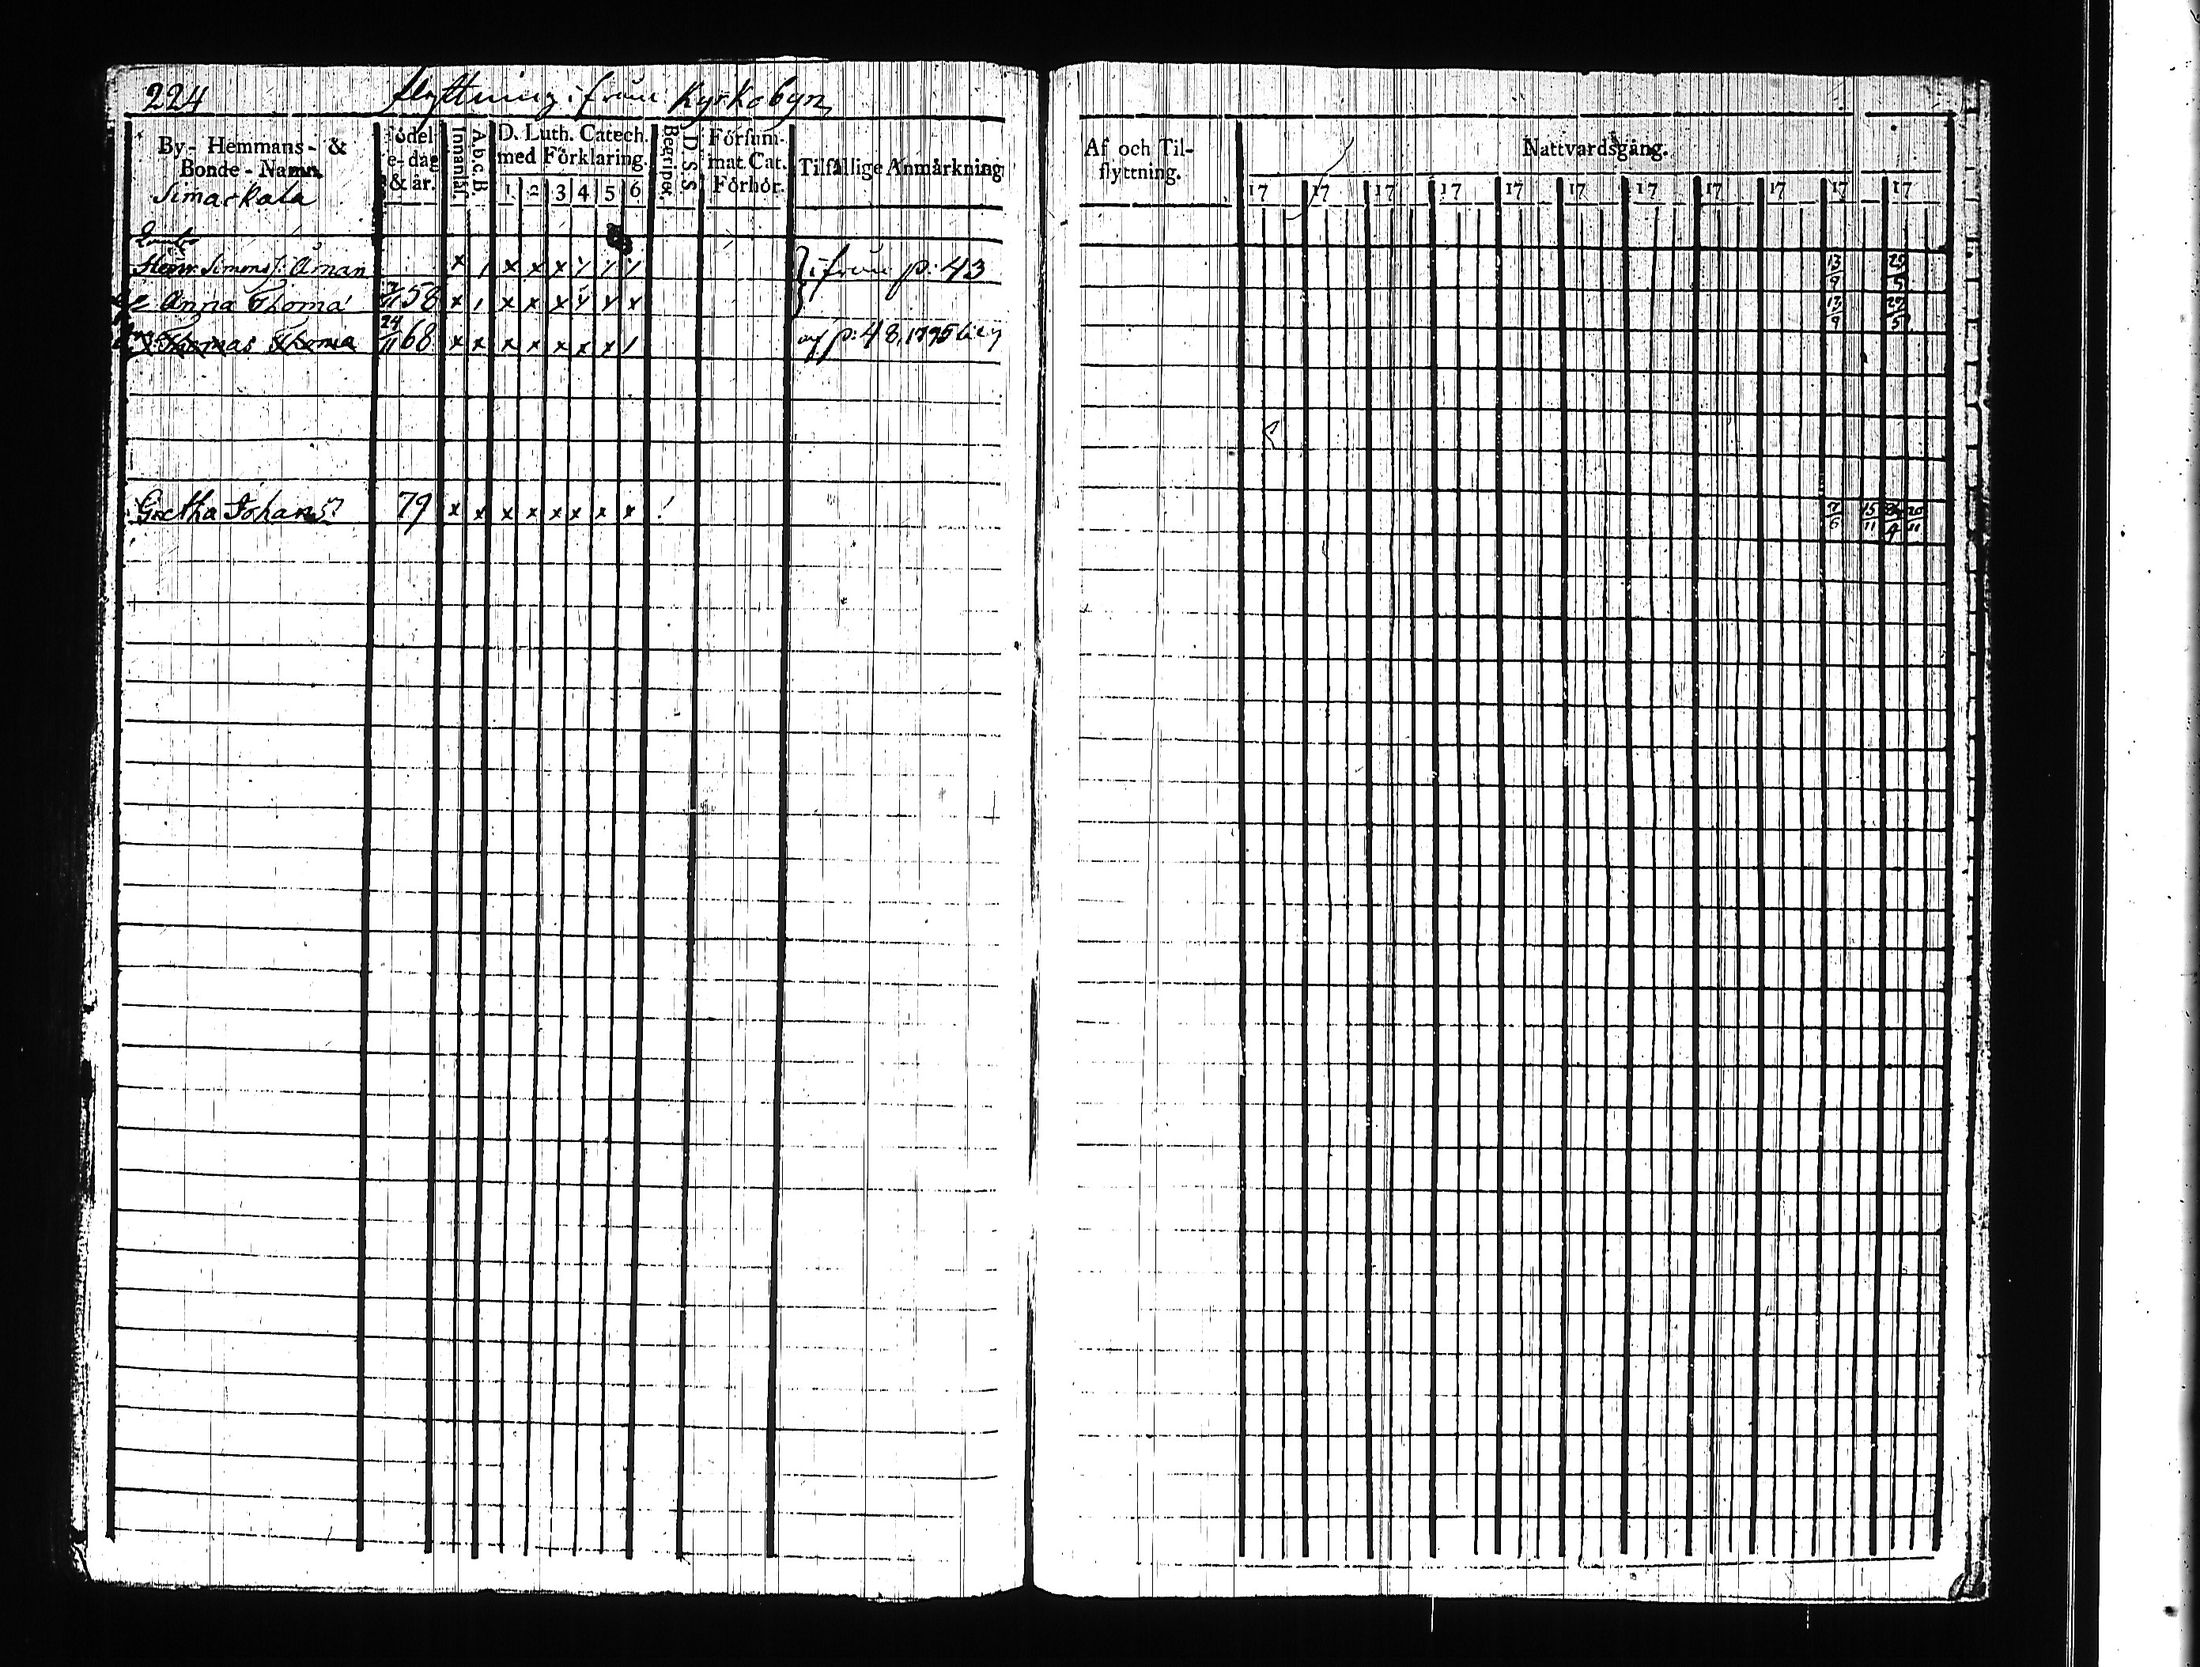 224 flyttning ifrån Kyrkobyn
By- Hemmans- & Bonde-Namn. födel e-dag & år. Innanläs. A.b.c.B D. Luth. Catech. med Förklaring. 1 2 3 4 5 6 Begripet. D.D.S.S Försummat Cat. Förhör. Tilfällige Anmärkning
Simackala
Henr. Simonss: Åman x 1 x x x y y y ifrån p: 43
e Anna Thoma 58 x 1 x x x y x x
Thomas Thoma 24/11 68 x x x x x x x 1 af p: 48, 1795
Gretha Johans 79 x x x x x x x x !
Af och Til- flyttning. Nattvardsgång.
17 17 17 17 17 17 17 17 17 17 17
13/9 25/5
13/9 25/5
7/6 15/11 20/11